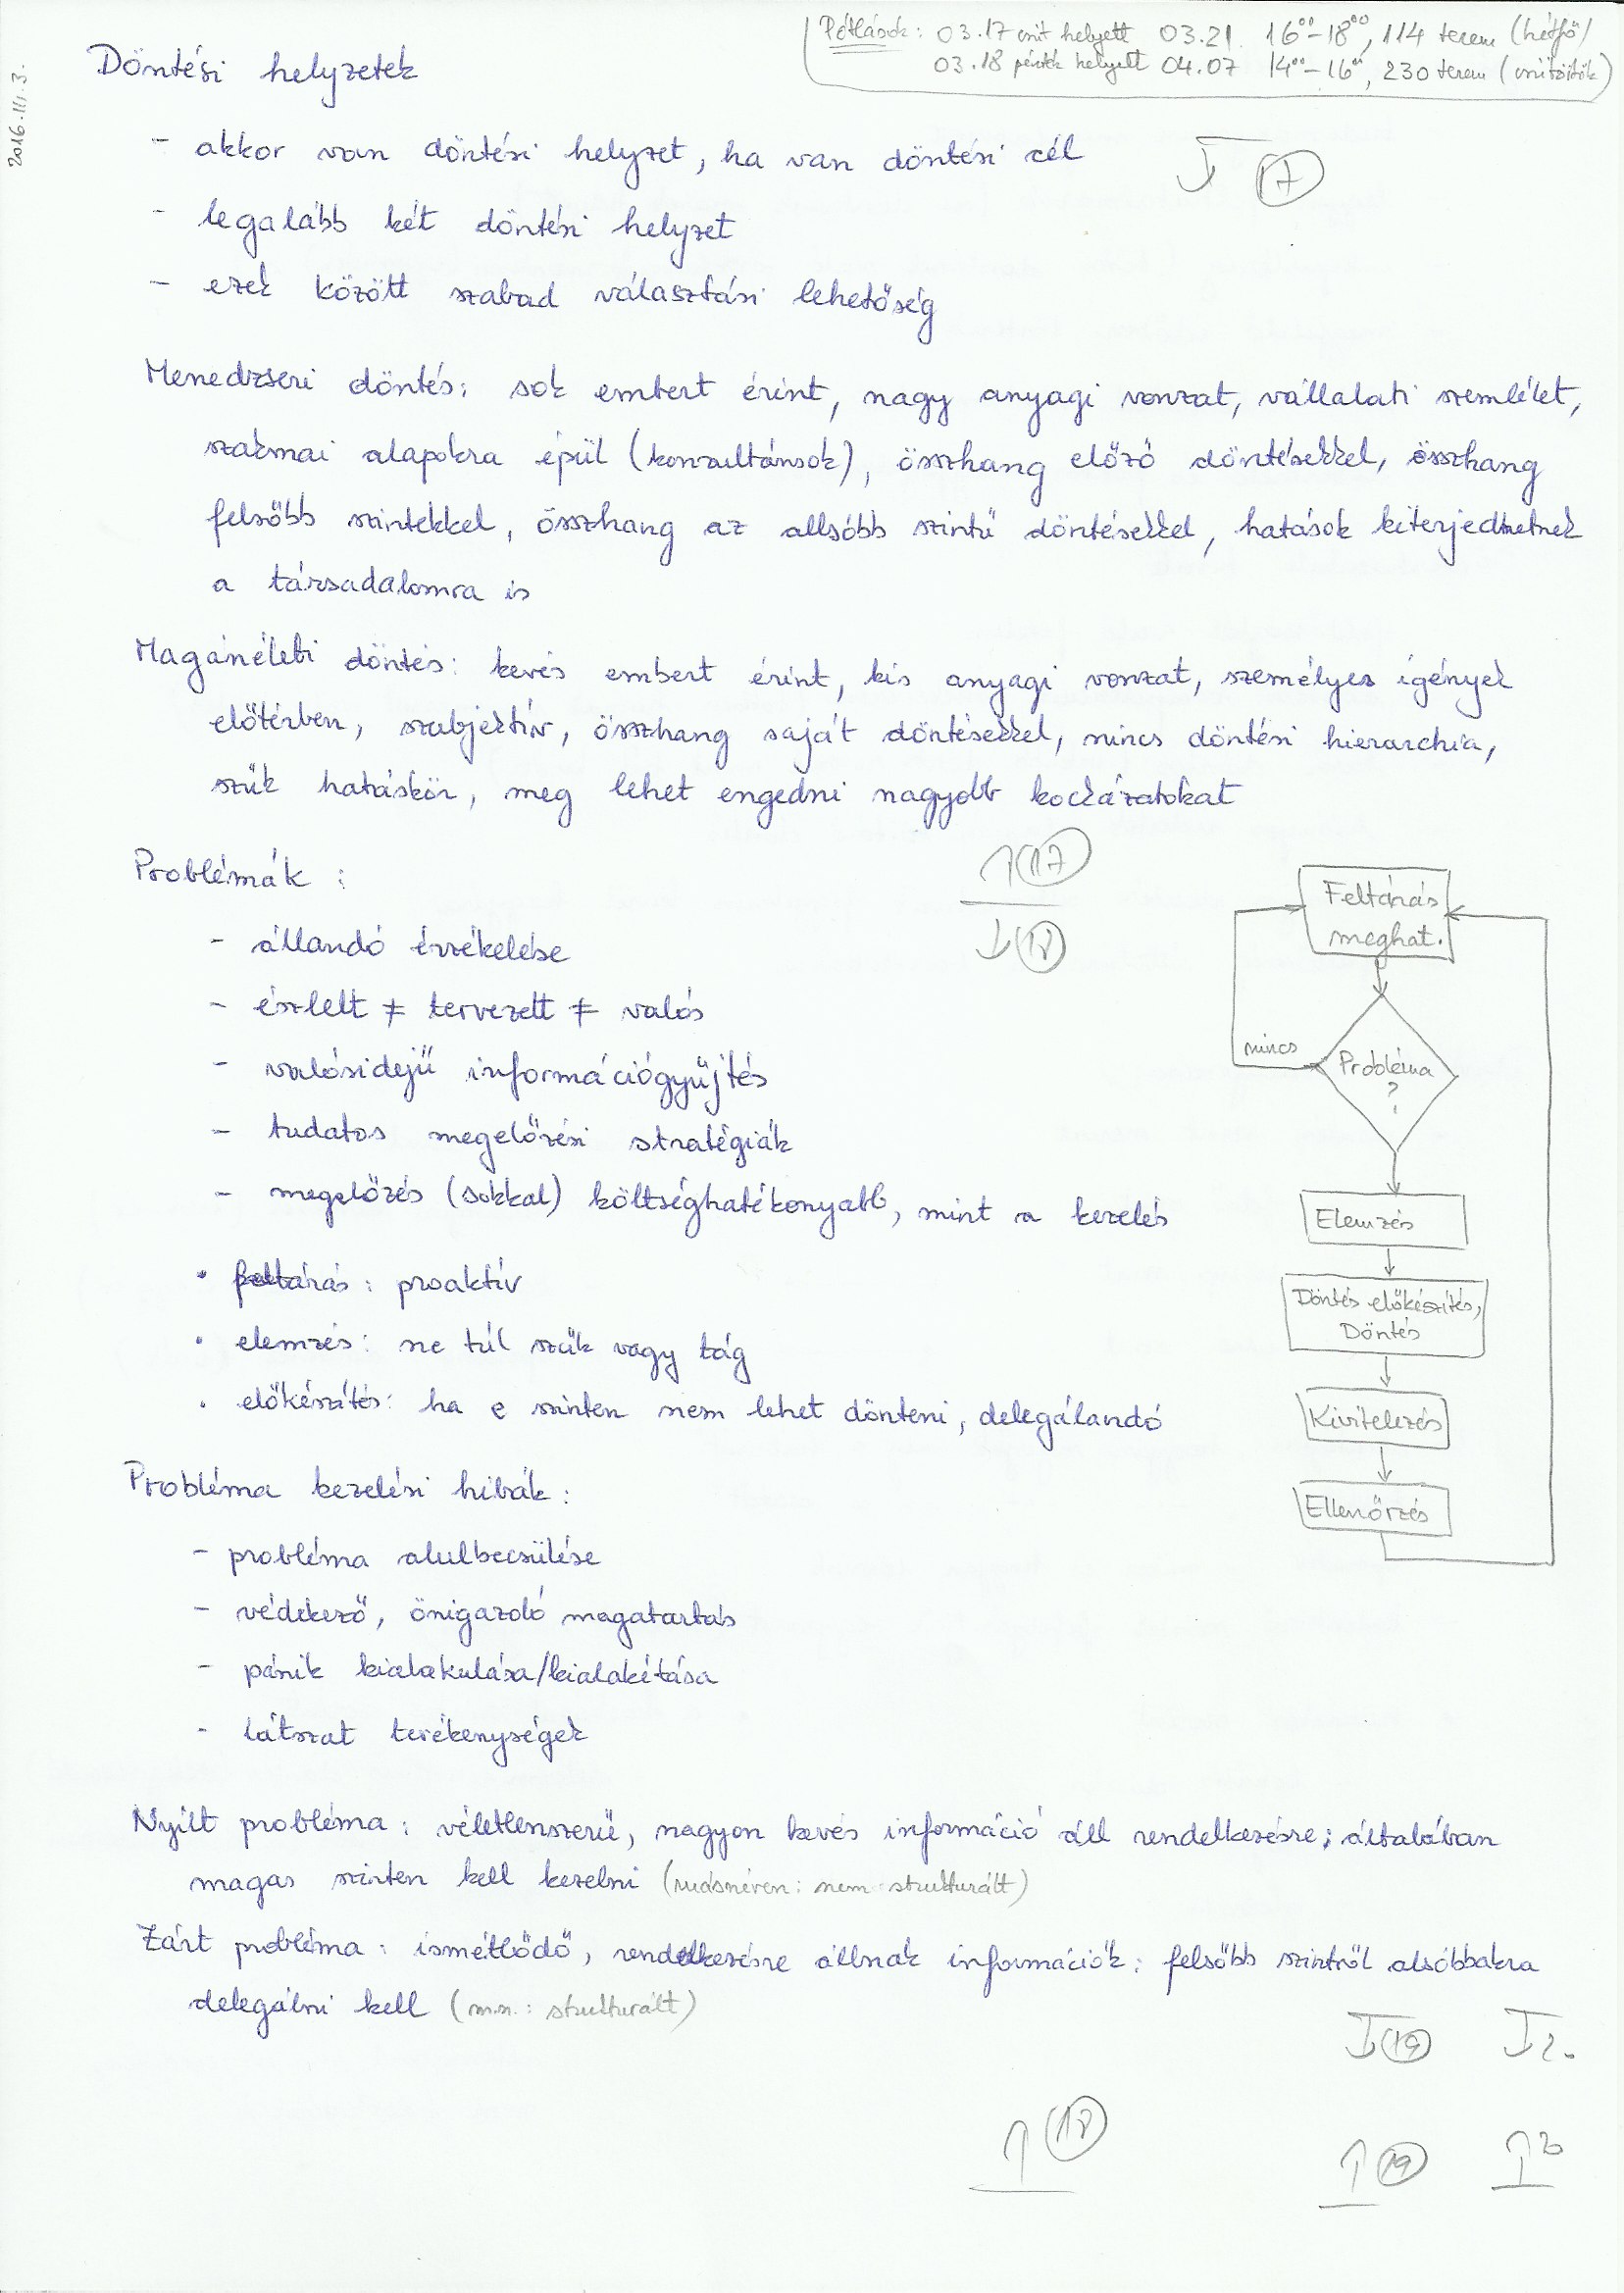 2016.III.3.
Pótlások: 03.17 csüt helyett 03.21. 16⁰⁰-18⁰⁰, 114 terem (hétfő)
03.18 péntek helyett 04.07 14⁰⁰-16⁰⁰, 230 terem (csütörtök)
Döntési helyzetek
- akkor van döntési helyzet, ha van döntési cél
17
- legalább két döntési helyzet
- ezek között szabad választási lehetőség
Menedzseri döntés: sok embert érint, nagy anyagi vonzat, vállalati szemlélet,
szakmai alapokra épül (konzultánsok), összhang előző döntésekkel, összhang
felsőbb szintekkel, összhang az allsóbb szintű döntésekkel, hatások kiterjedhetnek
a társadalomra is
Magánéleti döntés: kevés embert érint, kis anyagi vonzat, személyes igények
előtérben, szubjektív, összhang saját döntésekkel, nincs döntési hierarchia,
szűk hatáskör, meg lehet engedni nagyobb kockázatokat
17
18
Problémák:
- állandó érzékelése
- észlelt ≠ tervezett ≠ valós
- valósidejű információgyűjtés
- tudatos megelőzési stratégiák
- megelőzés (sokkal) költséghatékonyabb, mint a kezelés
• feltárás: proaktív
• elemzés: ne túl szűk vagy tág
• előkészítés: ha e szinten nem lehet dönteni, delegálandó
Feltárás
meghat.
nincs
Probléma
?
Elemzés
Döntés előkészítés,
Döntés
Kivitelezés
Ellenőrzés
Probléma kezelési hibák:
- probléma alulbecsülése
- védekező, önigazoló magatartás
- pánik kialakulása/kialakítása
- látszat tevékenységek
Nyílt probléma: véletlenszerű, nagyon kevés információ áll rendelkezésre; általában
magas szinten kell kezelni (másnéven: nem strukturált)
Zárt probléma: ismétlődő, rendelkezésre állnak információk; felsőbb szintről alsóbbakra
delegálni kell (m.n.: strukturált)
19
2.
18
19